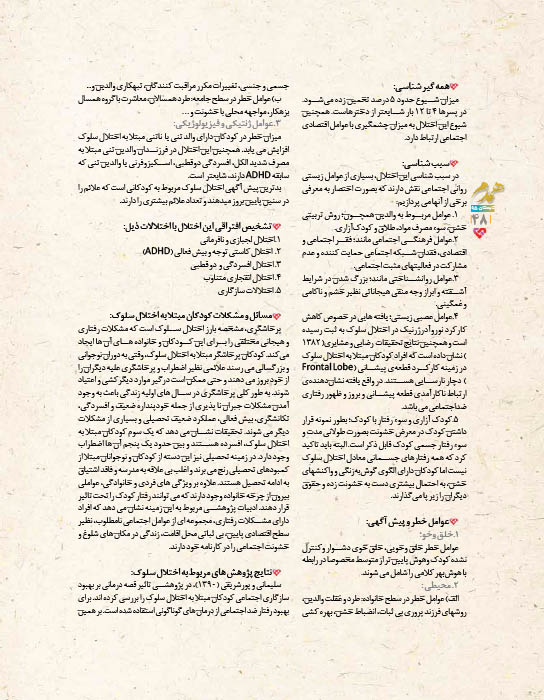 همه گیر شناسی:
میزان شیوع حدود ۵ درصد تخمین زده می‌شود.
در پسرها ۴ تا ۱۲ بار شایعتر از دخترهاست. همچنین
شیوع این اختلال به میزان چشمگیری با عوامل اقتصادی
اجتماعی ارتباط دارد.
سبب شناسی:
در سبب شناسی این اختلال، بسیاری از عوامل زیستی
روانی اجتماعی نقش دارند که بصورت اختصار به معرفی
برخی از آنها می پردازیم:
۱. عوامل مربوط به والدین همچون: روش تربیتی
خشن، سوء مصرف مواد، طلاق و کودک‌آزاری.
۲.عوامل فرهنگی اجتماعی مانند: فقر اجتماعی و
اقتصادی، فقدان شبکه اجتماعی حمایت کننده و عدم
مشارکت در فعالیتهای مثبت اجتماعی.
۳.عوامل روانشناختی مانند: بزرگ شدن در شرایط
آشفته و ابراز وجه منفی هیجاناتی نظیر خشم و ناکامی
و غمگینی.
۴.عوامل عصبی زیستی: یافته هایی در خصوص کاهش
کارکرد نورو آدرژنریک در اختلال سلوک به ثبت رسیده
است و همچنین نتایج تحقیقات رضایی و مشایری( ۱۳۸۲
) نشان داده است که افراد کودکان مبتلا به اختلال سلوک
در زمینه کارکرد قطعه‌ی پیشانی ( Frontal Lobe
) دچار نارسایی هستند. در واقع یافته نشان‌دهنده‌ی
ارتباط ناکارآمدی قطعه پیشانی و بروز و ظهور رفتاری
ضداجتماعی می‌باشد.
۵.کودک آزاری و سوء رفتار با کودک: بطور نمونه قرار
داشتن کودک در معرض خشونت بصورت طولانی مدت و
سوء رفتار جسمی کودک قابل ذکر است. البته باید تاکید
کرد که همه رفتارهای جسمانی معادل اختلال سلوک
نیست اما کودکان دارای الگوی گوش‌به‌زنگی و واکنشهای
خشن، به احتمال بیشتری دست به خشونت زده و حقوق
دیگران را زیر پا می‌گذارند.
عوامل خطر و پیش آگهی:
۱.خلق و خو:
عوامل خطر خلق و خویی، خلق خوی دشوار و کنترل
نشده کودک و هوش پایین تر از متوسط مخصوصا در رابطه
با هوش‌بهر کلامی را شامل می شوند.
۲.محیطی:
الف) عوامل خطر در سطح خانواده: طرد و غفلت والدین،
روشهای فرزند پروری بی ثبات، انضباط خشن، بهره کشی
جسمی و جنسی، تغییرات مکرر مراقبت کنندگان، تبهکاری والدین و...
ب) عوامل خطر در سطح جامعه: طرد همسالان، معاشرت با گروه همسال
بزهکار، مواجهه محلی با خشونت و...
۳.عوامل ژنتیکی و فیزیولوژیکی:
میزان خطر در کودکان دارای والد تنی یا ناتنی مبتلا به اختلال سلوک
افزایش می یابد. همچنین این اختلال در فرزندان والدین تنی مبتلا به
مصرف شدید الکل، افسردگی دوقطبی، اسکیزوفرنی یا والدین تنی که
سابقه ADHD دارند، شایعتر است.
بدترین پیش آگهی اختلال سلوک مربوط به کودکانی است که علائم را
در سنین پایین بروز میدهند و تعداد علائم بیشتری را دارند.
تشخیص افتراقی این اختلال با اختلالات ذیل:
۱.اختلال لجبازی و نافرمانی
۲.اختلال کاستی توجه و بیش فعالی (ADHD)
۳.اختلال افسردگی و دو قطبی
۴.اختلال انفجاری متناوب
۵.اختلالات سازگاری
مسائل و مشکلات کودکان مبتلا به اختلال سلوک:
پرخاشگری، مشخصه بارز اختلال سلوک است که مشکلات رفتاری
و هیجانی مختلفی را برای این کودکان و خانواده های آن ها ایجاد
می کند. کودکان پرخاشگر مبتلا به اختلال سلوک، وقتی به دوران نوجوانی
و بزرگسالی می رسند علائمی نظیر اضطراب و پرخاشگری علیه دیگران را
از خود بروز می دهند و حتی ممکن است درگیر موارد دیگر کشی و اعتیاد
شوند. به طور کلی پرخاشگری در سال های اولیه زندگی باعث به وجود
آمدن مشکلات جبران ناپذیری از جمله خودپنداره ضعیف و افسردگی،
تکانشگری، بیش فعالی، عملکرد ضعیف تحصیلی و بسیاری از مشکلات
دیگر می شوند. تحقیقات نشان می دهد که یک سوم کودکان مبتلا به
اختلال سلوک، افسرده هستند و بین حدود یک پنجم آن ها اضطراب
وجود دارد. در زمینه تحصیلی نیز این دسته از کودکان و نوجوانان مبتلا از
کمبودهای تحصیلی رنج می برند و اغلب بی علاقه به مدرسه و فاقد اشتیاق
به ادامه تحصیل هستند. علاوه بر ویژگی های فردی و خانوادگی، عواملی
بیرون از چرخه خانواده وجود دارند که می توانند رفتار کودک را تحت تاثیر
قرار دهند. ادبیات پژوهشی مربوط به این زمینه نشان می دهد که افراد
دارای مشکلات رفتاری، مجموعه ای از عوامل اجتماعی نامطلوب، نظیر
سطح اقتصادی پایین، بی ثباتی محل اقامت، زندگی در مکان های شلوغ و
خشونت اجتماعی را در کارنامه خود دارند.
نتایج پژوهش های مربوط به اختلال سلوک:
سلیمانی و پورشریفی (۱۳۹۰)، در پژوهشی تاثیر قصه درمانی بر بهبود
سازگاری اجتماعی کودکان مبتلا به اختلال سلوک را بررسی کرده اند. برای
بهبود رفتار ضد اجتماعی از درمان های گوناگونی استفاده شده است. بر همین
۴۸